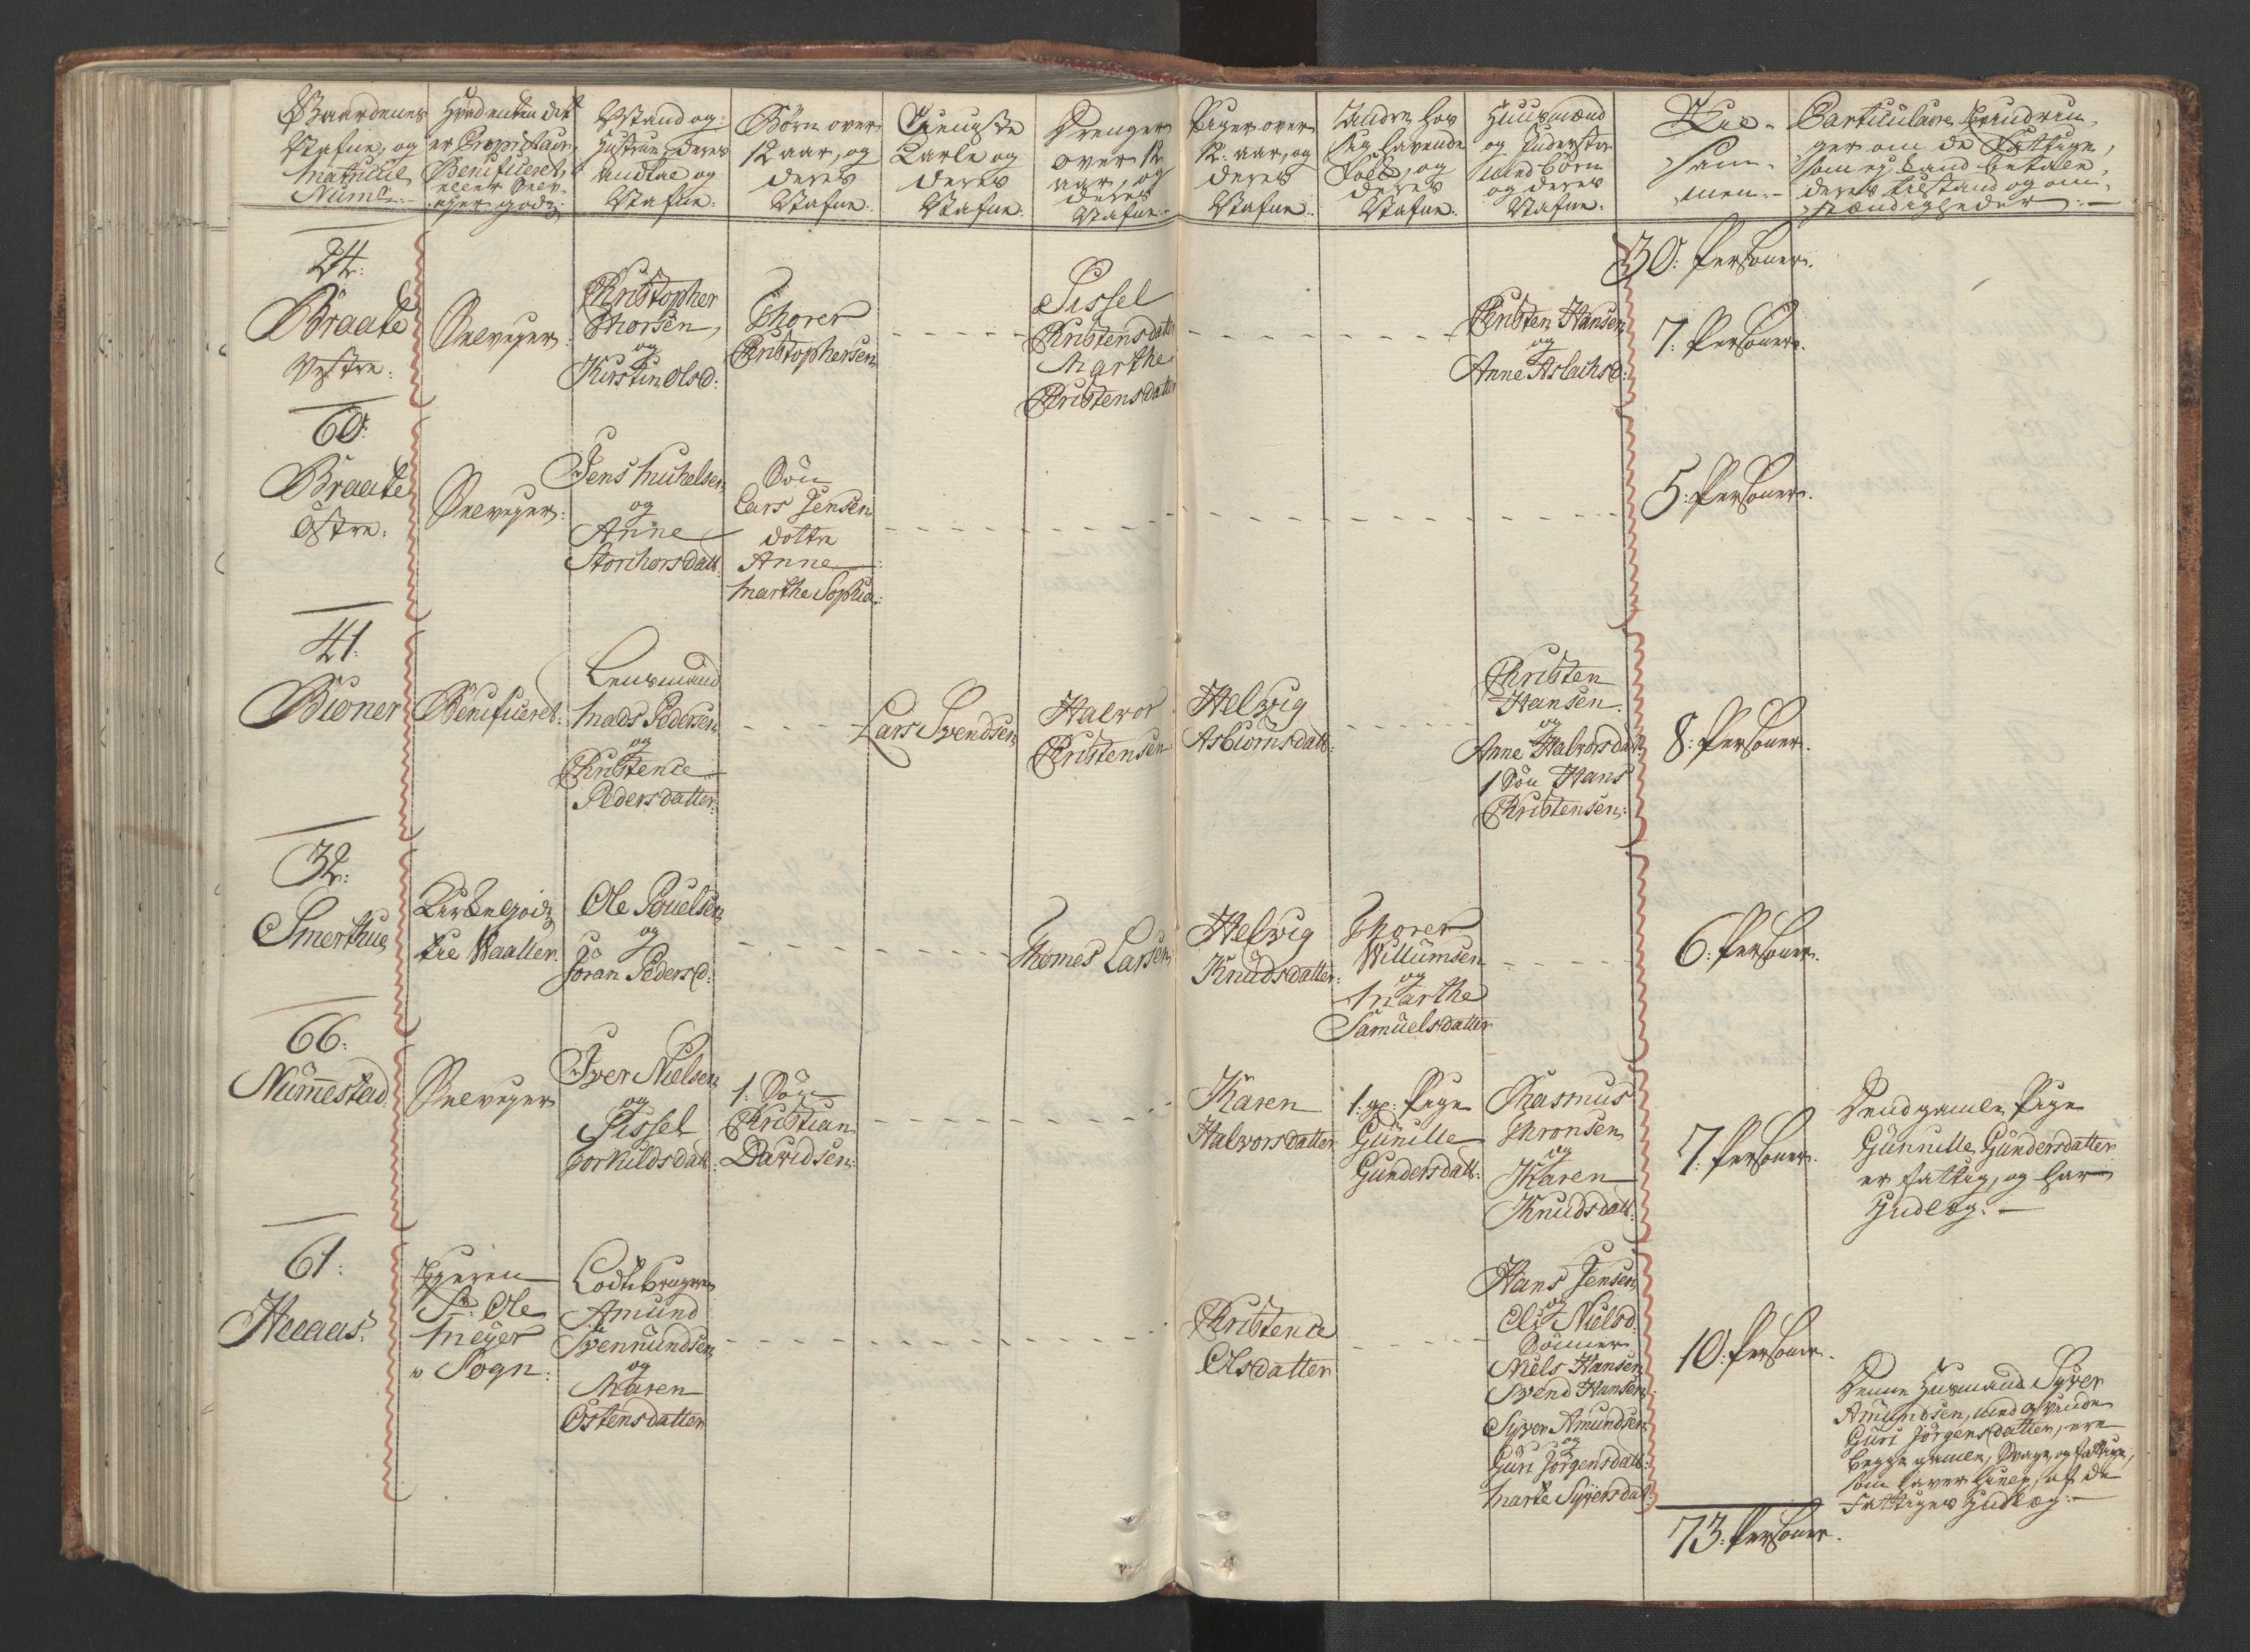 Gaardenes
Nafne, og
Matricul
Num:
Hvad enten det
er Proprietair,
Beneficeret,
eller Selv-
ejer godz:
Mand og
Hustrue deres
Andtal og
Nafne:
Børn over
12 aar, og
deres
Nafne:
Tieniste
Karle og
deres
Nafne:
Drenger
over 12
aar, og
deres
Nafne:
Piger over
12: aar, og
deres
Nafne:
Andre hos
sig havende
Folk, og
deres
Nafne:
Huusmænd
og Inderster
med børn
og deres
Nafne:
Til-
sam-
men:
Particulaire Erindrin-
ger om de Fattige,
som ej kand betale,
deres tilstand og om-
stændigheder:
30: Personer.
24:
Braate
Vestre:
Selvejer:
Christopher
Thorsen,
og
Kirstin Olsd:
Thorer
Christophersen
Sissel
Christensdatter
Marthe
Christensdatter
Christen Hansen
og
Anne Aslachsd:
7: Personer.
60:
Braate
Østre:
Selvejer:
Jens Michelsen
og
Anne
Storchorsdatt:
Søn
Lars Jensen
dottre
Anne
Marthe Sophia:
5: Personer.
41:
Biøner
Beneficeret:
Lensmand
Mads Pedersen
og
Christence
Pedersdatter:
Lars Svendsen
Halvor
Christensen
Helvig
Asbiørnsdatt:
Christen
Hansen.
og
Anne Halvorsdatt:
1 Søn Hans
Christensen:
8: Personer.
32:
Smerthue
Kirkegodz
til Waaller.
Ole Pouelsen
og
Jøran Pedersd:
Thomes Larsen
Helvig
Knudsdatter:
Thorer
Willumsen
og
Marthe
Samuelsdatter
6: Personer.
66:
Nummestad:
Selvejer
Iver Nielsen
og
Sissel
Torkildsdatt:
1: Søn
Christian
Davidsen:
Karen
Halvorsdatter
1: gl: Pige
Gunille
Gundersdatt:
Rasmus
Thronsen
og
Karen
Knudsdatt:
7: Personer.
Dend gamle Pige
Gunnille Gundersdatter
er fattig, og har
Indlæg:
61:
Heaas:
Ejeren
Sr: Ole
Meyer
i Sogn:
Lodtbruger
Amund
Svennundsen
og
Maren
Østensdatter
Christence
Olsdatter
Hans Jensen
og
Eli Nielsd:
Sønner
Niels Hansen
Svend Hansen
Syver Amundsen
og
Guri Jørgensdatt:
Marte Syversdatt:
10: Personer.
Denne Husmand Syver
Amundsen, med Qvinde
Guri Jørgensdatter, ere
begge gamle, Svage, og fattige,
som haver hielp, af de
Fattiges Indlæg:
73: Personer.